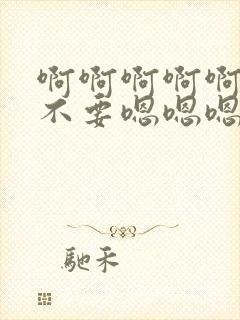 啊啊啊啊啊
不要嗯嗯嗯
驰禾